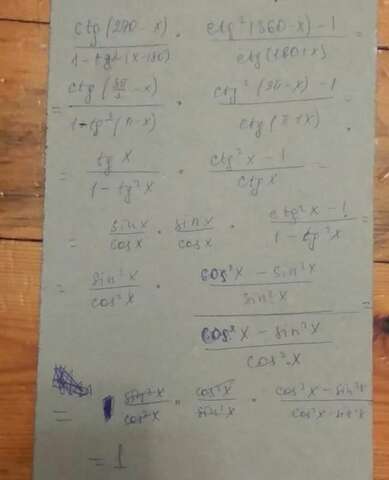 ctg(270-x) / 1-tg²(x-180) · ctg²(360-x)-1 / ctg(180+x) =
= ctg(3π/2 -x) / 1-tg²(π-x) · ctg²(2π-x)-1 / ctg(π+x) =
= tg x / 1-tg²x · ctg²x-1 / ctg x =
= sin x / cos x · sin x / cos x · ctg²x-1 / 1-tg²x =
= sin²x / cos²x · (cos²x-sin²x / sin²x) / (cos²x-sin²x / cos²x) =
= sin²x / cos²x · cos²x / sin²x · cos²x-sin²x / cos²x-sin²x
= 1